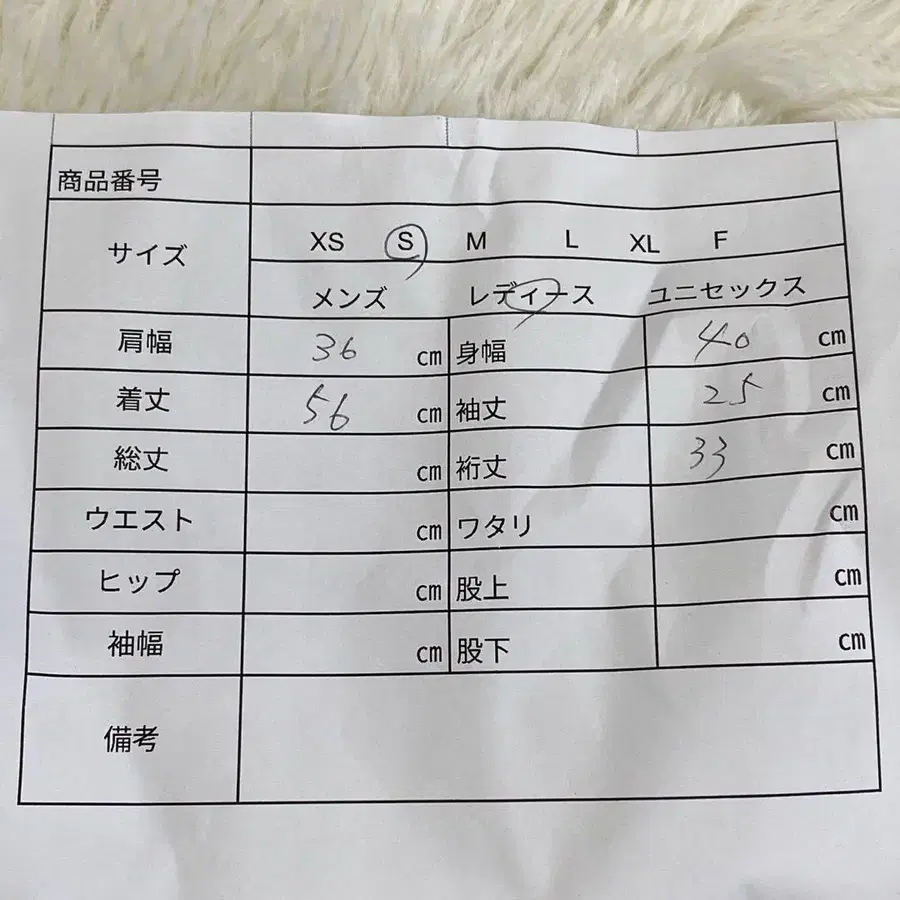 商品番号
サイズ XS S M L XL F
メンズ レディース ユニセックス
肩幅 36 cm 身幅 40 cm
着丈 56 cm 袖丈 25 cm
総丈 cm 裄丈 33 cm
ウエスト cm ワタリ cm
ヒップ cm 股上 cm
袖幅 cm 股下 cm
備考